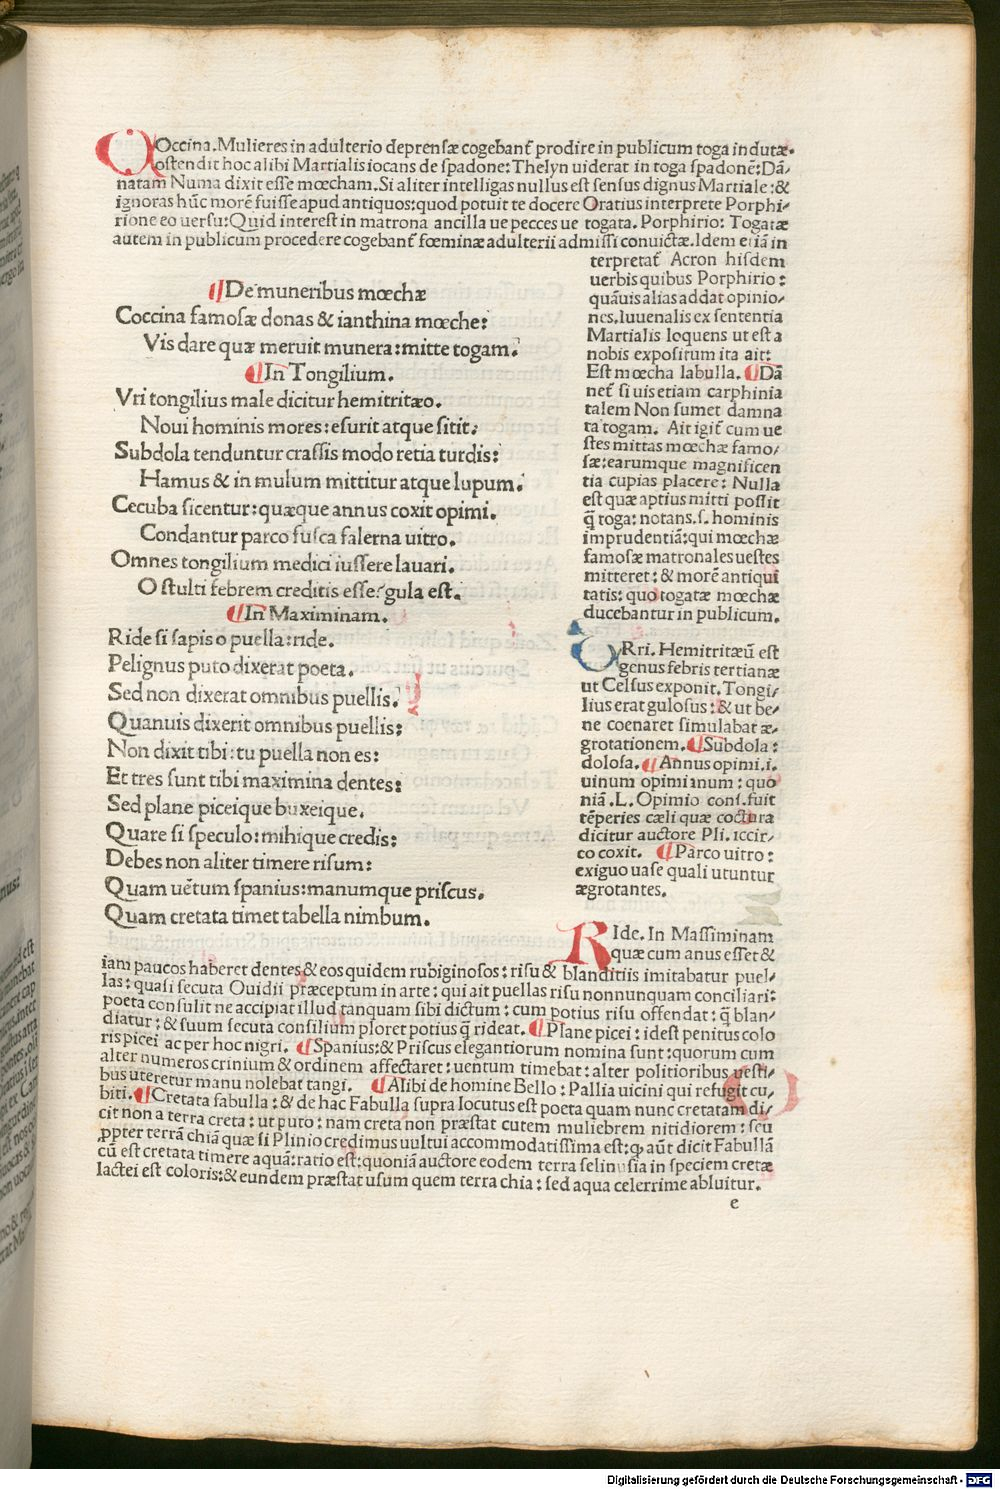 QOccina. Mulieres in adulterio deprensæ cogebant᷑ prodire in publicum toga indutæ.
ostendit hoc alibi Martialis iocans de spadone: Thelyn uiderat in toga spadonē: Dā/
natam Numa dixit esse mœcham. Si aliter intelligas nullus est sensus dignus Martiale: &
ignoras hūc morē fuisse apud antiquos: quod potuit te docere Oratius interprete Porphi/
rione eo uersu: Quid interest in matrona ancilla ue pecces ue togata. Porphirio: Togatæ
autem in publicum procedere cogebant᷑ fœminæ adulterii admissi conuictæ. Idem etiā in
terpretat᷑ Acron hisdem
uerbis quibus Porphirio:
quāuis alias addat opinio/
nes. Iuuenalis ex sententia
Martialis loquens ut est a
nobis expositum ita ait:
Est mœcha labulla. ¶Dā
net᷑ si uis etiam carphinia
talem Non sumet damna
ta togam. Ait igit᷑ cum ue
stes mittas mœchæ famo/
sæ: earumque magnificen
tia cupias placere: Nulla
est quæ aptius mitti possit
q̄ toga: notans .s. hominis
imprudentiā: qui mœchæ
famosæ matronales uestes
mitteret: & morē antiqui
tatis: quo togatæ mœchæ
ducebantur in publicum.
¶De muneribus mœchæ
Coccina famosæ donas & ianthina mœche:
Vis dare quæ meruit munera: mitte togam.
¶In Tongilium.
Vri tongilius male dicitur hemitritæo.
Noui hominis mores: esurit atque sitit.
Subdola tenduntur crassis modo retia turdis:
Hamus & in mulum mittitur atque lupum.
Cecuba sicentur: quæque annus coxit opimi.
Condantur parco fusca falerna uitro.
Omnes tongilium medici iussere lauari.
O stulti febrem creditis esse? gula est.
¶In Maximinam.
Ride si sapis o puella: ride.
Pelignus puto dixerat poeta.
Sed non dixerat omnibus puellis.
Quanuis dixerit omnibus puellis:
Non dixit tibi: tu puella non es:
Et tres sunt tibi maximina dentes:
Sed plane piceique buxeique.
Quare si speculo: mihique credis:
Debes non aliter timere risum:
Quam uētum spanius: manumque priscus.
Quam cretata timet tabella nimbum.
URri. Hemitritæū est
genus febris tertianæ
ut Celsus exponit. Tongi/
lius erat gulosus: & ut be/
ne coenaret simulabat æ/
grotationem. ¶Subdola:
dolosa. ¶Annus opimi .i.
uinum opimianum: quo
niā .L. Opimio cons. fuit
tēperies cæli quæ coctura
dicitur auctore Pli. iccir/
co coxit. ¶Parco uitro:
exiguo uase quali utuntur
ægrotantes.
RIde. In Massiminam
quæ cum anus esset &
iam paucos haberet dentes & eos quidem rubiginosos: risu & blanditiis imitabatur puel/
las: quasi secuta Ouidii præceptum in arte: qui ait puellas risu nonnunquam conciliari:
poeta consulit ne accipiat illud tanquam sibi dictum: cum potius risu offendat: q̄ blan/
diatur: & suum secuta consilium ploret potius q̄ rideat. ¶Plane picei: idest penitus colo
ris picei ac per hoc nigri. ¶Spanius: & Priscus elegantiorum nomina sunt: quorum cum
alter numeros crinium & ordinem affectaret: uentum timebat: alter politioribus uesti/
bus uteretur manu nolebat tangi. ¶Alibi de homine Bello: Pallia uicini qui refugit cu/
biti. ¶Cretata fabulla: & de hac Fabulla supra locutus est poeta quam nunc cretatam di/
cit non a terra creta: ut puto: nam creta non præstat cutem muliebrem nitidiorem: seu
ꝓpter terrā chiā quæ si Plinio credimus uultui accommodatissima est: ꝙ aūt dicit Fabullā
cū est cretata timere aquā: ratio est: quoniā auctore eodem terra selinusia in speciem cretæ
lactei est coloris: & eundem præstat usum quem terra chia: sed aqua celerrime abluitur.
e
Digitalisierung gefördert durch die Deutsche Forschungsgemeinschaft - DFG